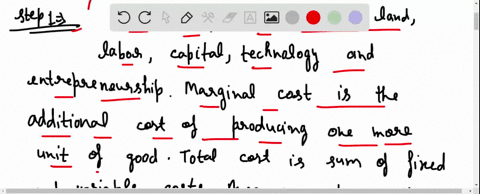 step 1 :-
land,
labor, capital, technology and
entrepreneurship. Marginal cost is the
additional cost of producing one more
unit of good. Total cost is sum of fixed